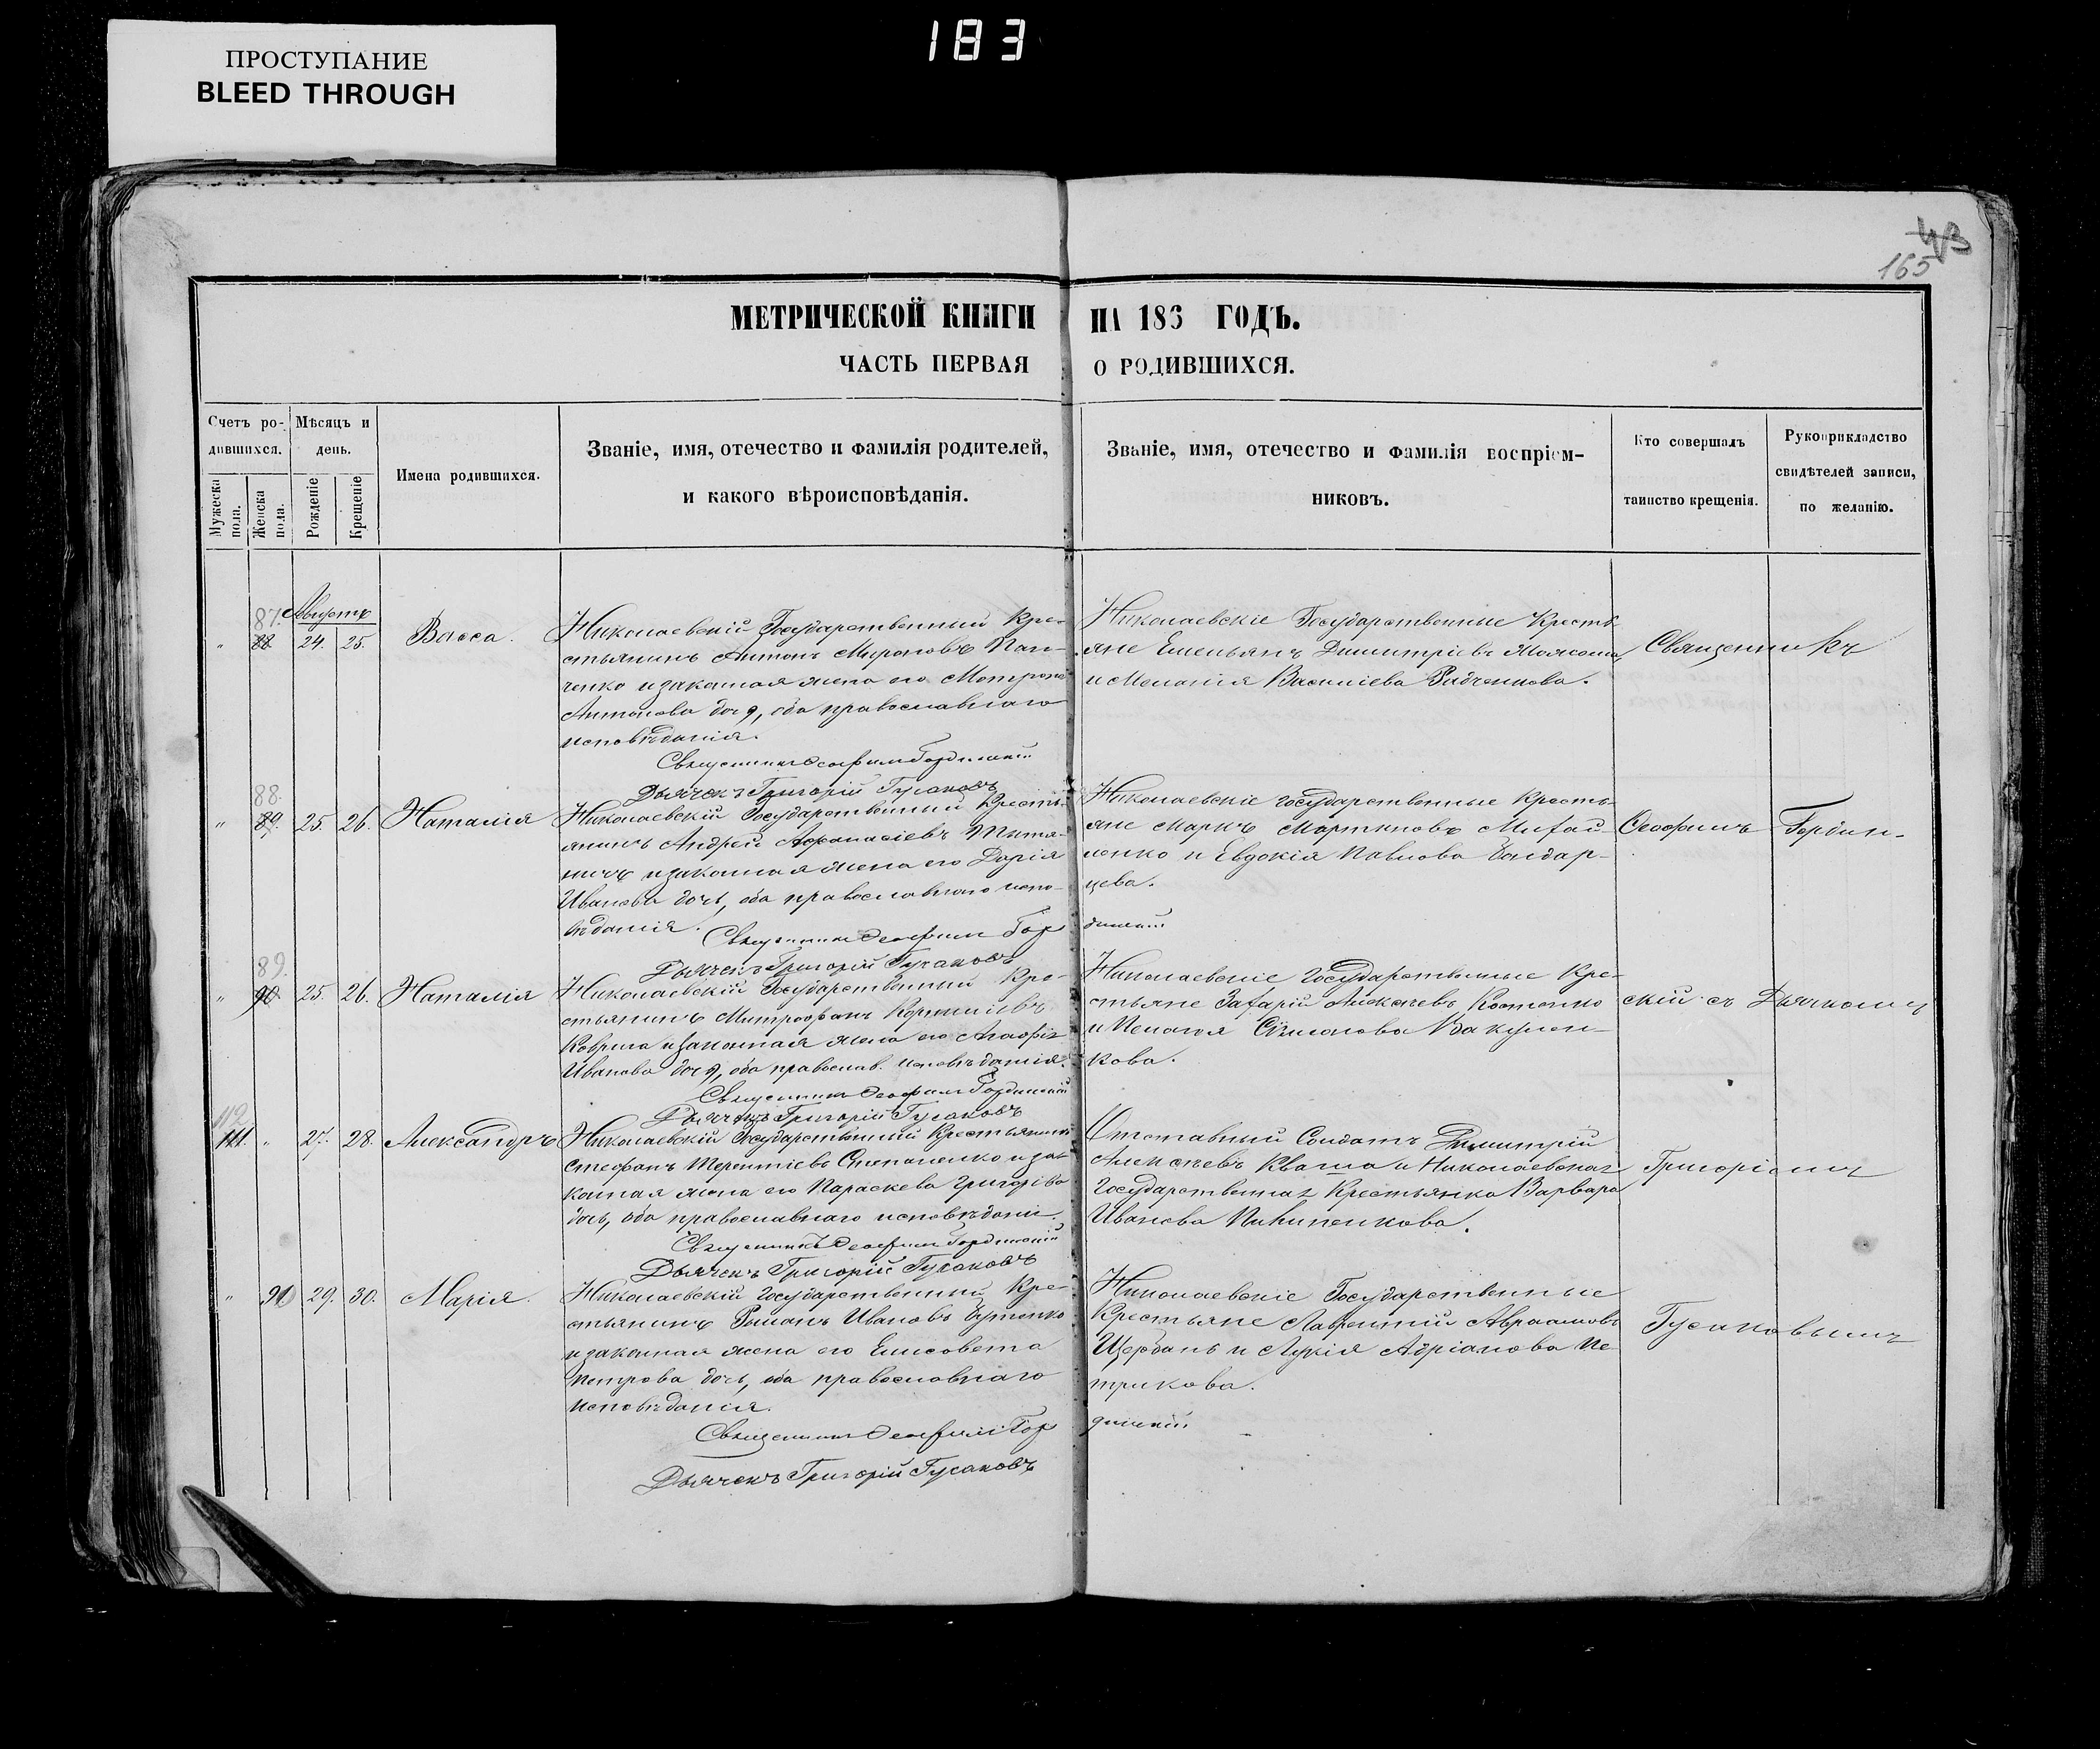 183
ПРОСТУПАНИЕ
BLEED THROUGH
43
165
МЕТРИЧЕСКОЙ КНИГИ НА 186 ГОДЪ.
ЧАСТЬ ПЕРВАЯ О РОДИВШИХСЯ.
Счетъ ро-
дившихся.
Мужеска пола.
Женска пола.
Мѣсяцъ и
день.
Рожденіе
Крещеніе
Имена родившихся.
Званіе, имя, отечество и фамилія родителей,
и какого вѣроисповѣданія.
Званіе, имя, отечество и фамилія воспріем-
никовъ.
Кто совершалъ
таинство крещенія.
Рукоприкладство
свидѣтелей записи,
по желанію.
87. Августъ
" 88 24. 25. Васса.
Николаевскій Государственный Кре-
стьянинъ Антонъ Мироновъ Пан-
ченко и законная жена его Матрона
Антонова дочь, оба православнаго
исповѣданія.
Священникъ Ѳеофилъ Гординскій
Дьячекъ Григорій Гусаковъ
Николаевскіе Государственные Крестья-
яне Емельянъ Димитріевъ
и Меланія Василіева Рядченкова.
Священникъ
88.
" 89. 25. 26. Наталія
Николаевскій Государственный Кресть-
янинъ Андрей Аѳанасіевъ
и законная жена его Дарія
Иванова дочь, оба православнаго испо-
вѣданія.
Священникъ Ѳеофилъ Гор
динскій
Дьячекъ Григорій Гусаковъ
Николаевскіе Государственные Кресть-
яне Маркъ Мартиновъ Михай-
ленко и Евдокія Павлова Бондар-
цева.
Ѳеофилъ Гордин-
89.
" 90 25. 26. Наталія
Николаевскій Государственный Кре-
стьянинъ Митрофанъ Корниліевъ
Коврига и законная жена его Агафія
Иванова дочь, оба православ. исповѣданія.
Священникъ Ѳеофилъ Гординскій
Дьячекъ Григорій Гусаковъ
Николаевскіе Государственные Кре-
стьяне Захарій Алексѣевъ Костенко
и Пелагія Симонова Вакулен-
кова.
скій съ Дьячкомъ
112
111. " 27. 28. Александръ
Николаевскій Государственный Крестьянинъ
Стефанъ Терентіевъ Степаненко и за-
конная жена его Параскева Григоріева
дочь, оба православнаго исповѣданія.
Священникъ Ѳеофилъ Гординскій
Дьячекъ Григорій Гусаковъ
Отставный Солдатъ Димитрій
Алексѣевъ Кваша и Николаевская
Государственная Крестьянка Варвара
Иванова Пилипенкова.
Григоріемъ
" 90 29. 30. Марія.
Николаевскій Государственный Кре-
стьянинъ Романъ Ивановъ Бутенко
и законная жена его Елисавета
Петрова дочь, оба православнаго
исповѣданія.
Священникъ Ѳеофилъ Гор
динскій.
Дьячекъ Григорій Гусаковъ
Николаевскіе Государственные
Крестьяне Лаврентій Авраамовъ
Щербань и Лукія Адріанова Пе-
трикова.
Гусаковымъ